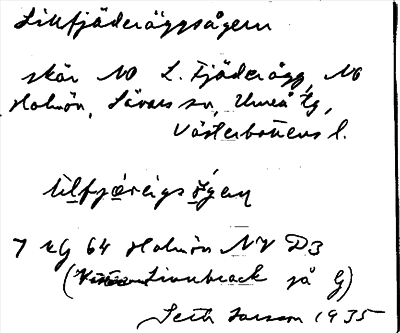 Lillfjäderäggsågern
skär NO L. Fjäderägg, NO
Holmön, Sävars sn, Umeå tg,
Västerbottens l.
lilfjæreigsǫ́gen
7 kG 64 Holmön NV D3
( Linnbrack på G)
Seth Larsson 1935